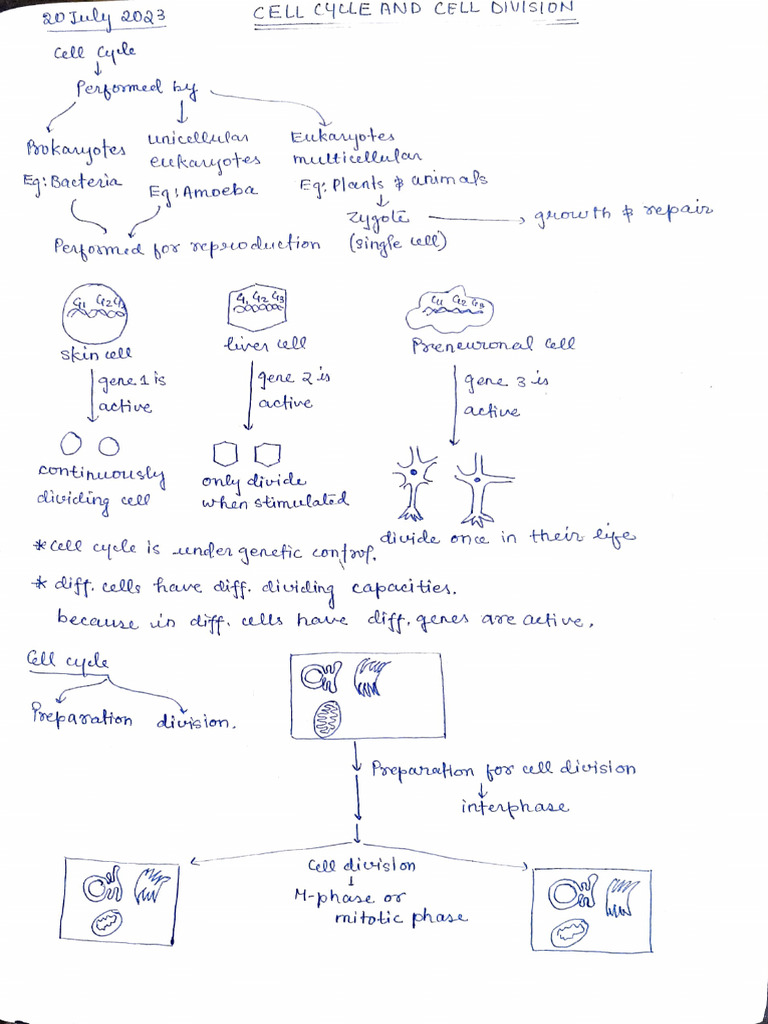 20 July 2023
CELL CYCLE AND CELL DIVISION
Cell Cycle
Performed by
Prokaryotes
Eg: Bacteria
unicellular
eukaryotes
Eg: Amoeba
Eukaryotes
multicellular
Eg: Plants & animals
Zygote
(single cell)
growth & repair
Performed for reproduction
G1 G2 G3
skin cell
gene 1 is
active
continuously
dividing cell
G1 G2 G3
liver cell
gene 2 is
active
only divide
when stimulated
G1 G2 G3
Preneuronal cell
gene 3 is
active
divide once in their life
* cell cycle is under genetic control.
* diff. cells have diff. dividing capacities.
because in diff. cells have diff. genes are active.
Cell cycle
Preparation division.
Preparation for cell division
interphase
Cell division
M-phase or
mitotic phase